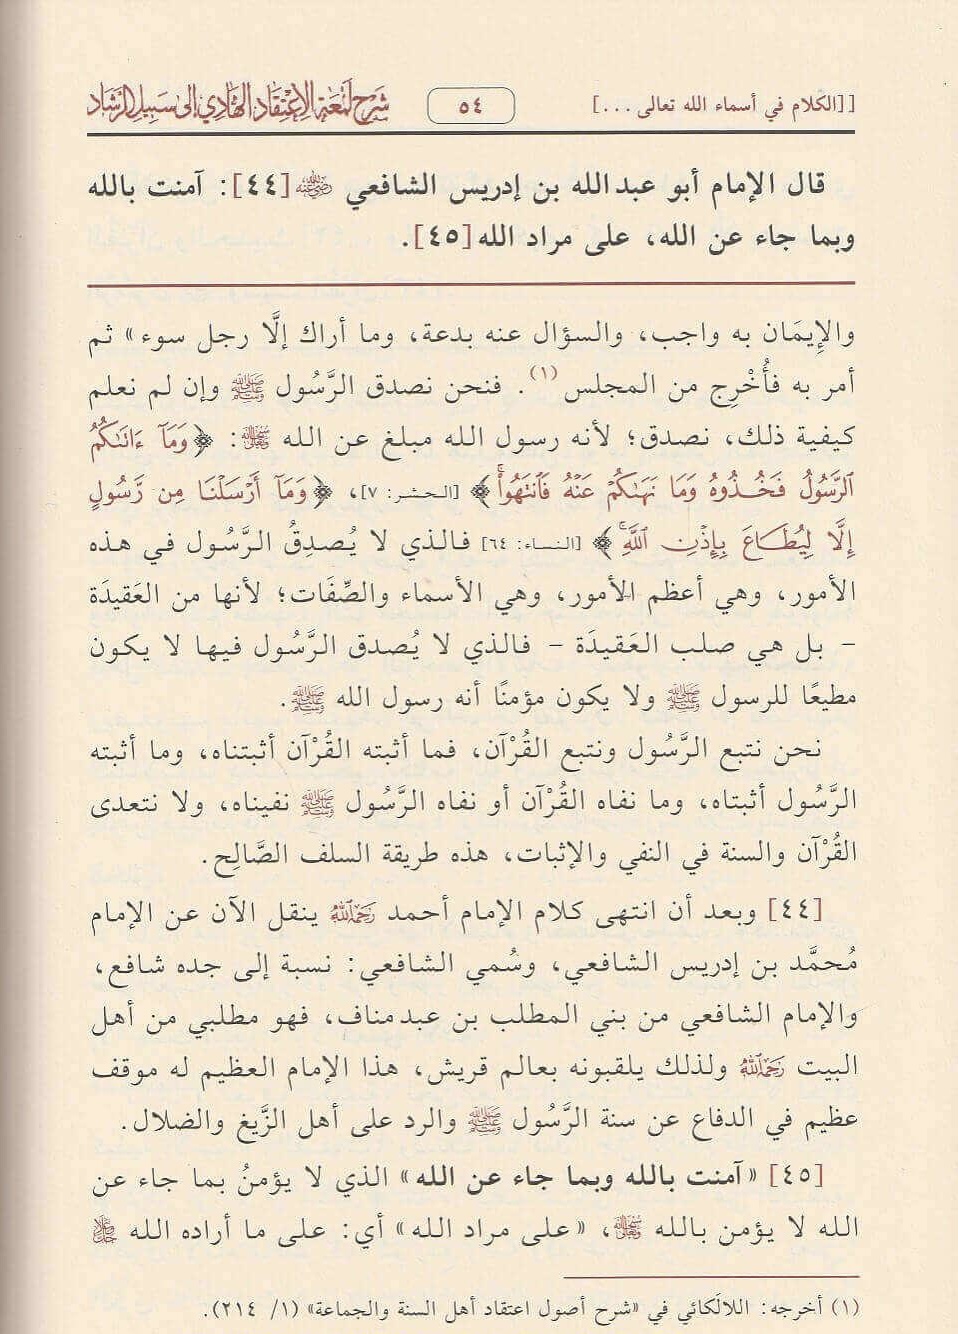 [[الكلام في أسماء الله تعالى ...]
٥٤
شرح لمعة الاعتقاد الهادي إلى سبيل الرشاد
قال الإمام أبو عبد الله بن إدريس الشافعي رضي الله عنه [٤٤]: آمنت بالله
وبما جاء عن الله، على مراد الله[٤٥].
والإِيمَان به واجب، والسؤال عنه بدعة، وما أراك إلَّا رجل سوء» ثم
أمر به فأُخْرِج من المجلس (١). فنحن نصدق الرَّسُول ﷺ وإن لم نعلم
كيفية ذلك، نصدق؛ لأنه رسول الله مبلغ عن الله ﷻ: ﴿وَمَآ ءَاتَىٰكُمُ
ٱلرَّسُولُ فَخُذُوهُ وَمَا نَهَىٰكُمْ عَنْهُ فَٱنتَهُوا۟ۚ﴾ [الحشر: ٧]، ﴿وَمَآ أَرْسَلْنَا مِن رَّسُولٍ
إِلَّا لِيُطَاعَ بِإِذْنِ ٱللَّهِۚ﴾ [النساء: ٦٤] فالذي لا يُصدِقُ الرَّسُول في هذه
الأمور، وهي أعظم الأمور، وهي الأسماء والصِّفَات؛ لأنها من العَقيدَة
- بل هي صلب العَقيدَة - فالذي لا يُصدق الرَّسُول فيها لا يكون
مطيعًا للرسول ﷺ ولا يكون مؤمنًا أنه رسول الله ﷺ.
نحن نتبع الرَّسُول ونتبع القُرْآن، فما أثبته القُرْآن أثبتناه، وما أثبته
الرَّسُول أثبتاه، وما نفاه القُرْآن أو نفاه الرَّسُول ﷺ نفيناه، ولا نتعدى
القُرْآن والسنة في النفي والإثبات، هذه طريقة السلف الصَّالِح.
[٤٤] وبعد أن انتهى كلام الإمام أحمد رحمه الله ينقل الآن عن الإمام
مُحمَّد بن إدريس الشافعي، وسُمي الشافعي: نسبة إلى جده شافع،
والإمام الشافعي من بني المطلب بن عبد مناف، فهو مطلبي من أهل
البيت رحمه الله ولذلك يلقبونه بعالم قريش، هذا الإمام العظيم له موقف
عظيم في الدفاع عن سنة الرَّسُول ﷺ والرد على أهل الزَّيغ والضلال.
[٤٥] «آمنت بالله وبما جاء عن الله» الذي لا يؤمنُ بما جاء عن
الله لا يؤمن بالله ﷻ، «على مراد الله» أي: على ما أراده الله ﷻ
(١) أخرجه: اللالَكائي في «شرح أصول اعتقاد أهل السنة والجماعة» (١/ ٢١٤).